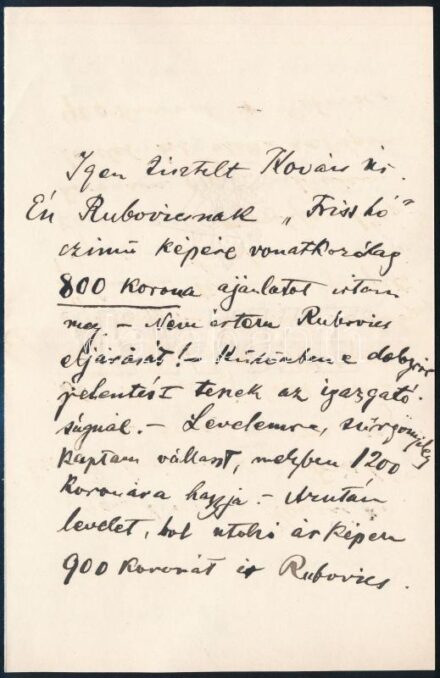 Igen tisztelt Kovács úr.
Én Rubovicsnak „Friss hó"
czimü képére vonatkozólag
800 korona ajánlatot irtam
meg – Nem értem Rubovics
eljárását! – Különben e dologról
jelentést tenek az igazgató-
ságnál. – Levelemre, sürgönyileg
kaptam választ, melyben 1200
koronára hagyja. – Azután
levelet, hol utolsó ár képen
900 koronát ir Rubovics.